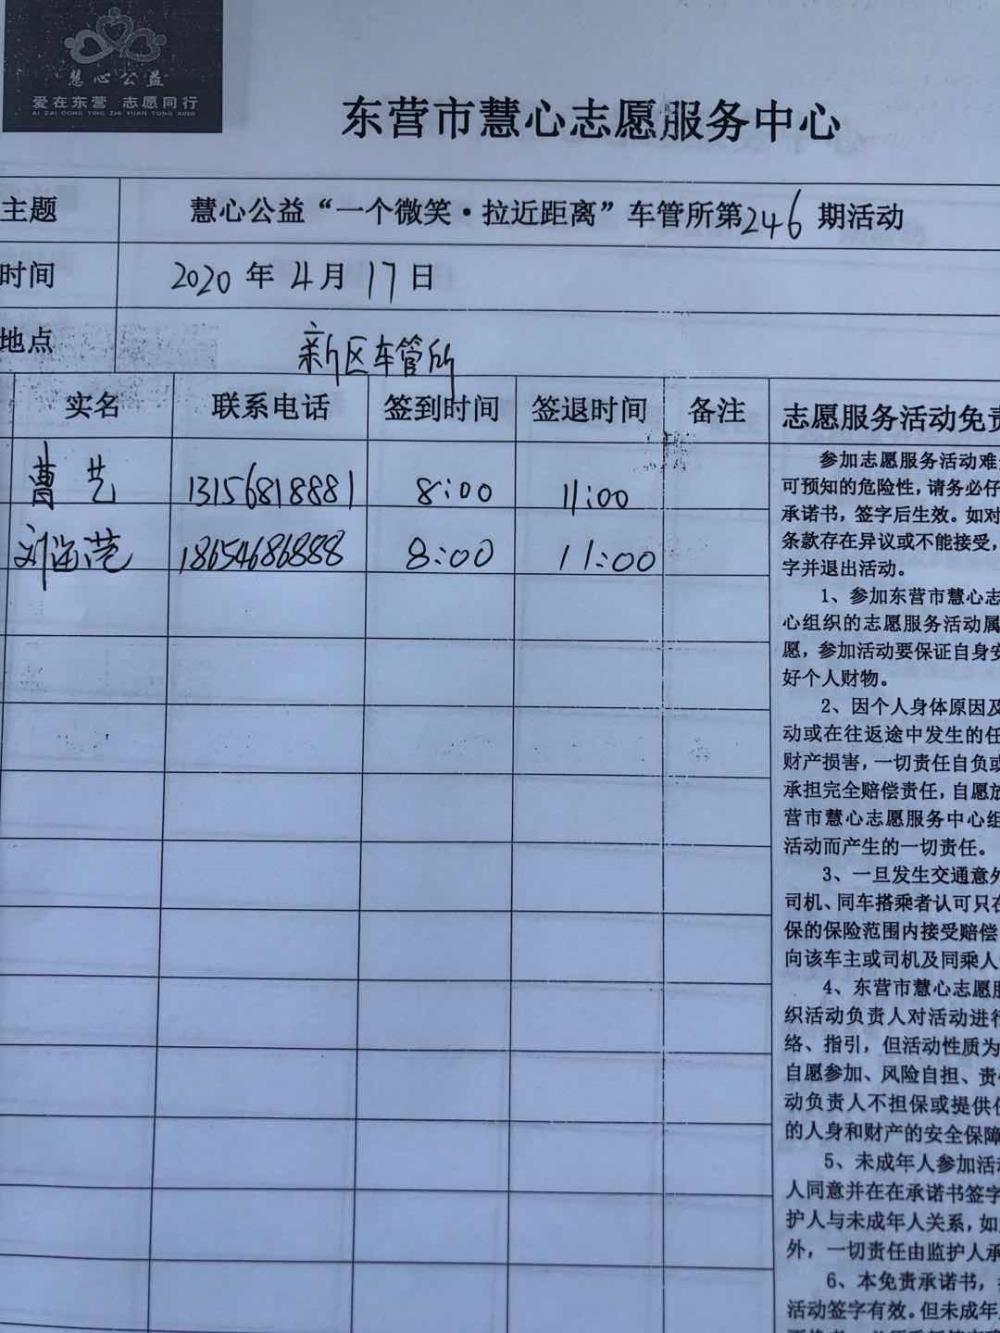 慧心公益
爱在东营 志愿同行
AI ZAI DONG YING ZHI YUAN TONG XING
东营市慧心志愿服务中心
主题 慧心公益“一个微笑·拉近距离”车管所第246期活动
时间 2020年4月17日
地点 新区车管所
实名 联系电话 签到时间 签退时间 备注
曹艺 13156818881 8:00 11:00
刘 18654686888 8:00 11:00
志愿服务活动免责
参加志愿服务活动难
可预知的危险性,请务必仔
承诺书,签字后生效。如对
条款存在异议或不能接受,
字并退出活动。
1、参加东营市慧心志
心组织的志愿服务活动属
愿,参加活动要保证自身安
好个人财物。
2、因个人身体原因及
动或在往返途中发生的任
财产损害,一切责任自负或
承担完全赔偿责任,自愿放
营市慧心志愿服务中心组
活动而产生的一切责任。
3、一旦发生交通意外
司机、同车搭乘者认可只在
保的保险范围内接受赔偿
向该车主或司机及同乘人
4、东营市慧心志愿服
织活动负责人对活动进行
络、指引,但活动性质为
自愿参加、风险自担、责
动负责人不担保或提供任
的人身和财产的安全保障
5、未成年人参加活动
人同意并在在承诺书签字
护人与未成年人关系,如
外,一切责任由监护人承
6、本免责承诺书,
活动签字有效。但未成年